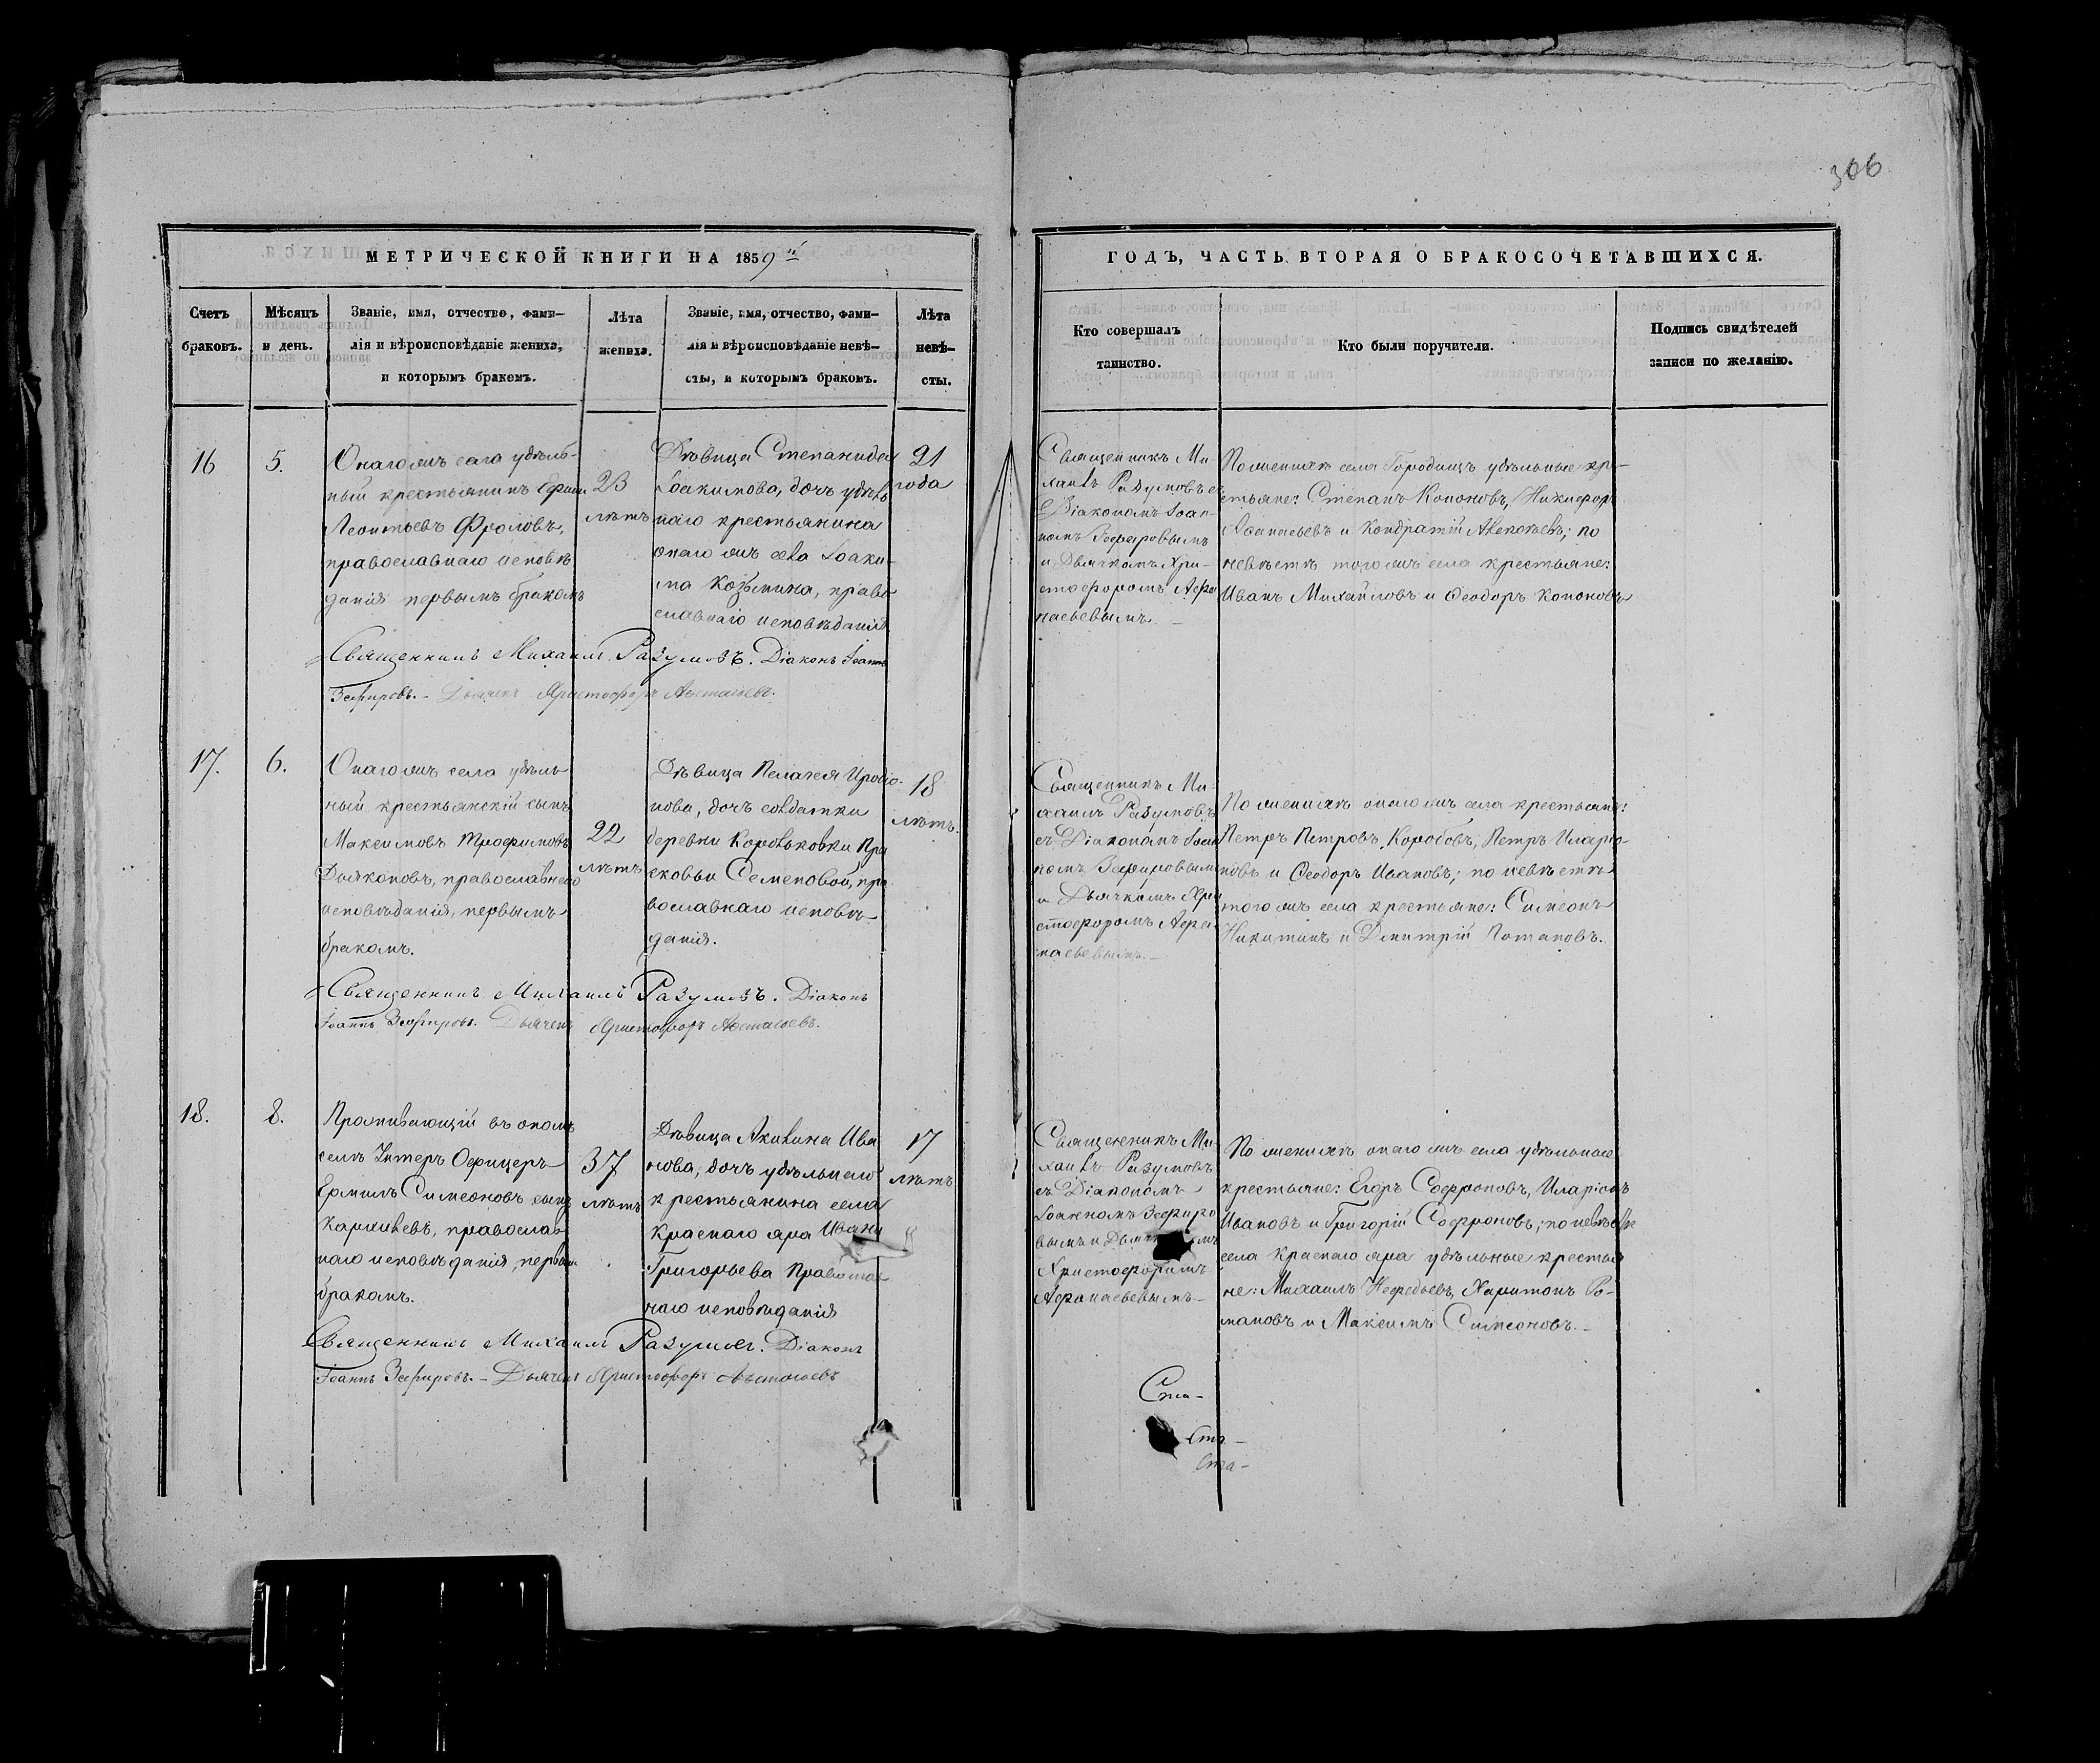 306
МЕТРИЧЕСКОЙ КНИГИ НА 1859й
ГОДЪ, ЧАСТЬ ВТОРАЯ О БРАКОСОЧЕТАВШИХСЯ.
Счетъ
браковъ.
Мѣсяцъ
и день.
Званіе, имя, отчество, фами-
лія и вѣроисповѣданіе жениха,
и которымъ бракомъ.
Лѣта
жениха.
Званіе, имя, отчество, фами-
лія и вѣроисповѣданіе невѣ-
сты, и которымъ бракомъ.
Лѣта
невѣ-
сты.
Кто совершалъ
таинство.
Кто были поручители.
Подпись свидѣтелей
записи по желанію.
16
5.
Онагожъ села удѣль-
ный крестьянинъ
Леонтьевъ Фроловъ,
православнаго исповѣ
данія первымъ бракомъ
23
лѣтъ
Дѣвица Степанида
Іоакимова, дочь удѣль
наго крестьянина
онагожъ села Іоаки-
ма Козьмина, право
славнаго исповѣданія.
21
года
Священникъ Ми-
хаилъ Разумовъ съ
Діакономъ Іоан-
номъ Зефировымъ
и Дьячкомъ Хри-
стофоромъ Афа
насьевымъ.
По женихѣ села Городищъ удѣльные кре-
стьяне: Степанъ Кононовъ, Никифоръ
Афанасьевъ и Кондратій; по
невѣстѣ тогожъ села крестьяне:
Иванъ Михайловъ и Ѳеодоръ Кононовъ
Священникъ Михаилъ Разумовъ. Діаконъ Іоаннъ
Зефировъ. - Дьячекъ Христофоръ
17.
6.
Онагожъ села удѣль
ный крестьянскій сынъ
Максимовъ Трофимовъ
Дьяконовъ, православнаго
исповѣданія, первымъ
бракомъ.
22
лѣтъ
Дѣвица Пелагея Иродіо-
нова, дочь солдатки
деревни Пра
сковьи Семеновой, пра
вославнаго исповѣ-
данія.
18
лѣтъ.
Священникъ Ми-
хаилъ Разумовъ
съ Діакономъ Іоан
номъ Зефировымъ
и Дьячкомъ Хри
стофоромъ Афа-
насьевымъ.
По женихѣ онагожъ села крестьяне:
Петръ Петровъ, Коробовъ, Петръ Иларіо-
новъ и Ѳеодоръ Ивановъ; по невѣстѣ
тогожъ села крестьяне: Симеонъ
Никитинъ и Дмитрій Потаповъ.
Священникъ Михаилъ Разумовъ. Діаконъ
Іоаннъ Зефировъ. Дьячекъ Христофоръ
18.
8.
Проживающій въ ономъ
селѣ Унтеръ Офицеръ
Ермилъ Симеоновъ сынъ
православ
наго исповѣданія, первым
бракомъ.
37
лѣтъ
Дѣвица Акилина Ива
нова, дочь удѣльнаго
крестьянина села
Краснаго яра Ивана
Григорьева Православ
наго исповѣданія
17
лѣтъ
Священникъ Ми-
хаилъ Разумовъ
съ Діакономъ
Іоанномъ Зефиро
вымъ и
Христофоромъ
Афанасьевымъ
По женихѣ онагожъ села удѣльные
крестьяне: Егоръ Софроновъ, Иларіонъ
Ивановъ и Григорій Софроновъ; по невѣстѣ
села Краснаго яра удѣльные крестья
не: Михаилъ Нефедьевъ, Харитонъ Ро-
мановъ и Максимъ Симеоновъ.
Священникъ Михаилъ Разумовъ. Діаконъ
Іоаннъ Зефировъ. - Дьячекъ Христофоръ